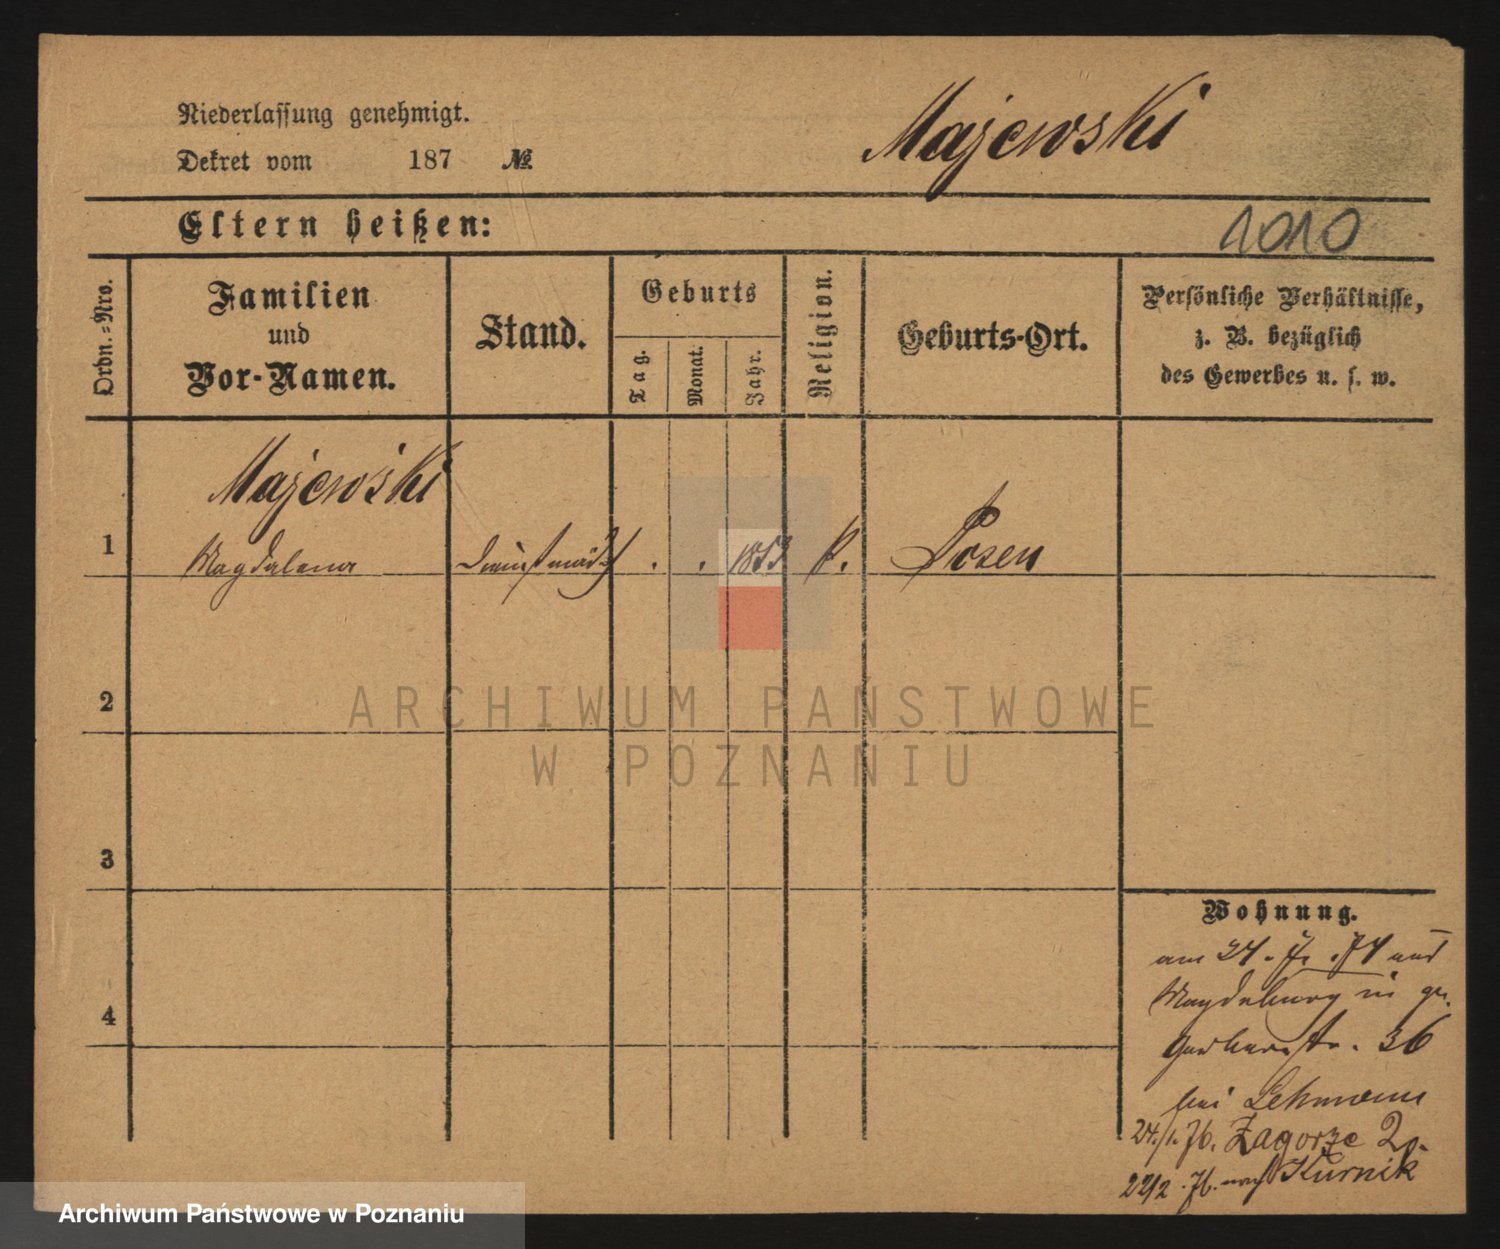 Niederlassung genehmigt.
Majewski
Dekret vom 187 №
Eltern heißen:
1010
Ordn.-Nro.
Familien
und
Vor-Namen.
Stand.
Geburts
Tag.
Monat.
Jahr.
Religion.
Geburts-Ort.
Persönliche Verhältnisse,
z. B. bezüglich
des Gewerbes u. s. w.
Majewski
1 Magdalena Dienstmädch . . 1853 k. Posen
2
3
4
Wohnung.
am 24. 7. 74 aus
Magdeburg in gr.
Gerberstr. 36
bei Lehmann
24./1. 76. Zagorze 2.
22/2. 76. nach Kurnik
ARCHIWUM PAŃSTWOWE
W POZNANIU
Archiwum Państwowe w Poznaniu